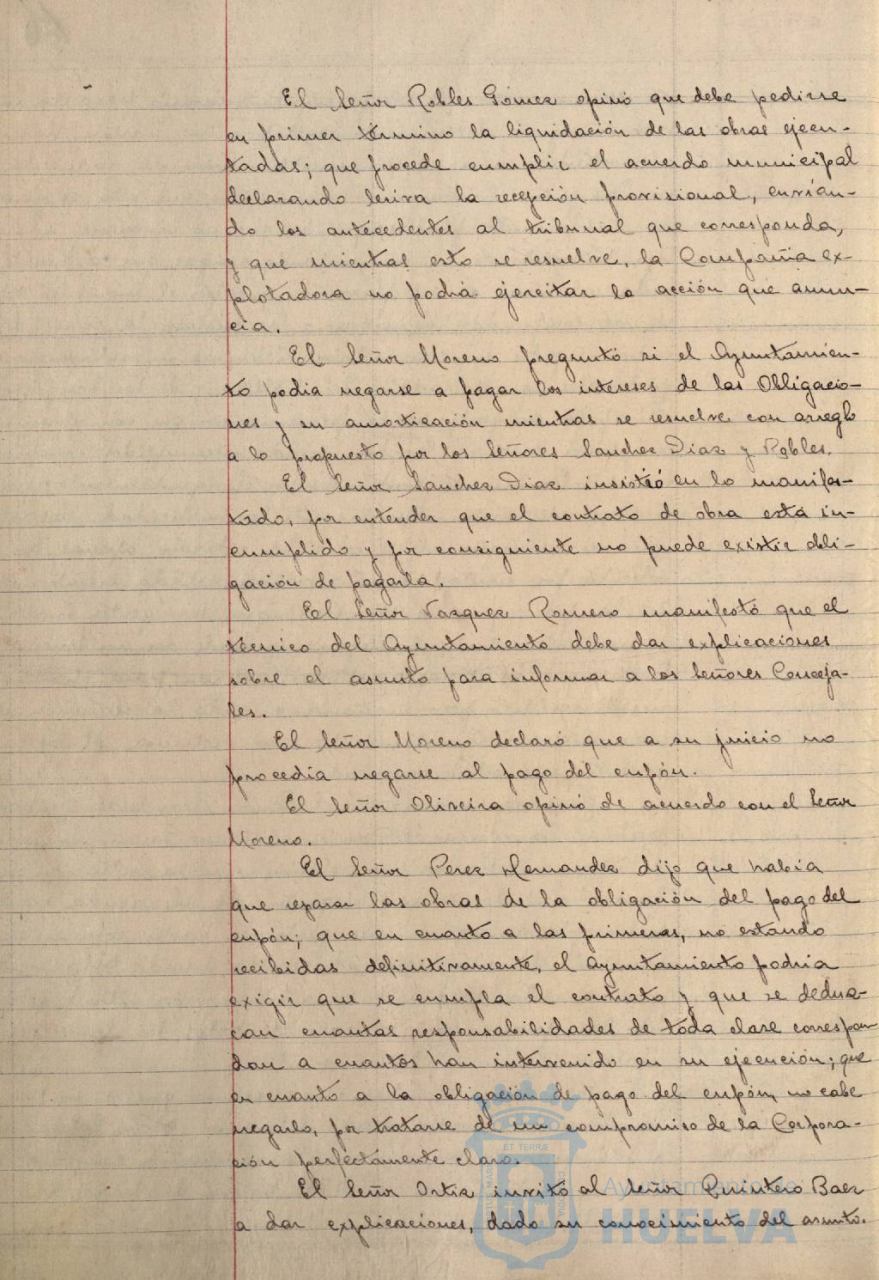 El Señor Robles Gómez opinó que debe pedirse
en primer término la liquidación de las obras ejecu-
tadas; que procede cumplir el acuerdo municipal
declarando lesiva la recepción provisional, envian-
do los antecedentes al tribunal que corresponda,
y que mientras esto se resuelve, la Compañia ex-
plotadora no podrá ejercitar la acción que anun-
cia.
El Señor Moreno preguntó si el Ayuntamien-
to podia negarse a pagar los intereses de las Obligacio-
nes y su amortización mientras se resuelve con arreglo
a lo propuesto por los Señores Sanchez Diaz y Robles.
El Señor Sanchez Diaz insistió en lo manifes-
tado, por entender que el contrato de obra está in-
cumplido y por consiguiente no puede existir obli-
gación de pagarla.
El Señor Vazquez Romero manifestó que el
técnico del Ayuntamiento debe dar explicaciones
sobre el asunto para informar a los Señores Conceja-
les.
El Señor Moreno declaró que a su juicio no
procedia negarse al pago del cupón.
El Señor Oliveira opinó de acuerdo con el Señor
Moreno.
El Señor Perez Hernandez dijo que habia
que separar las obras de la obligación del pago del
cupón; que en cuanto a las primeras, no estando
recibidas definitivamente, el Ayuntamiento podria
exigir que se cumpla el contrato y que se deduz-
can cuantas responsabilidades de toda clase correspon-
dan a cuantos han intervenido en su ejecución; que
en cuanto a la obligación de pago del cupón, no cabe
negarlo, por tratarse de un compromiso de la Corpora-
ción perféctamente claro.
El Señor Ortiz invitó al Señor Quintero Baez
a dar explicaciones, dado su conocimiento del asunto.
Ayuntamiento de
HUELVA